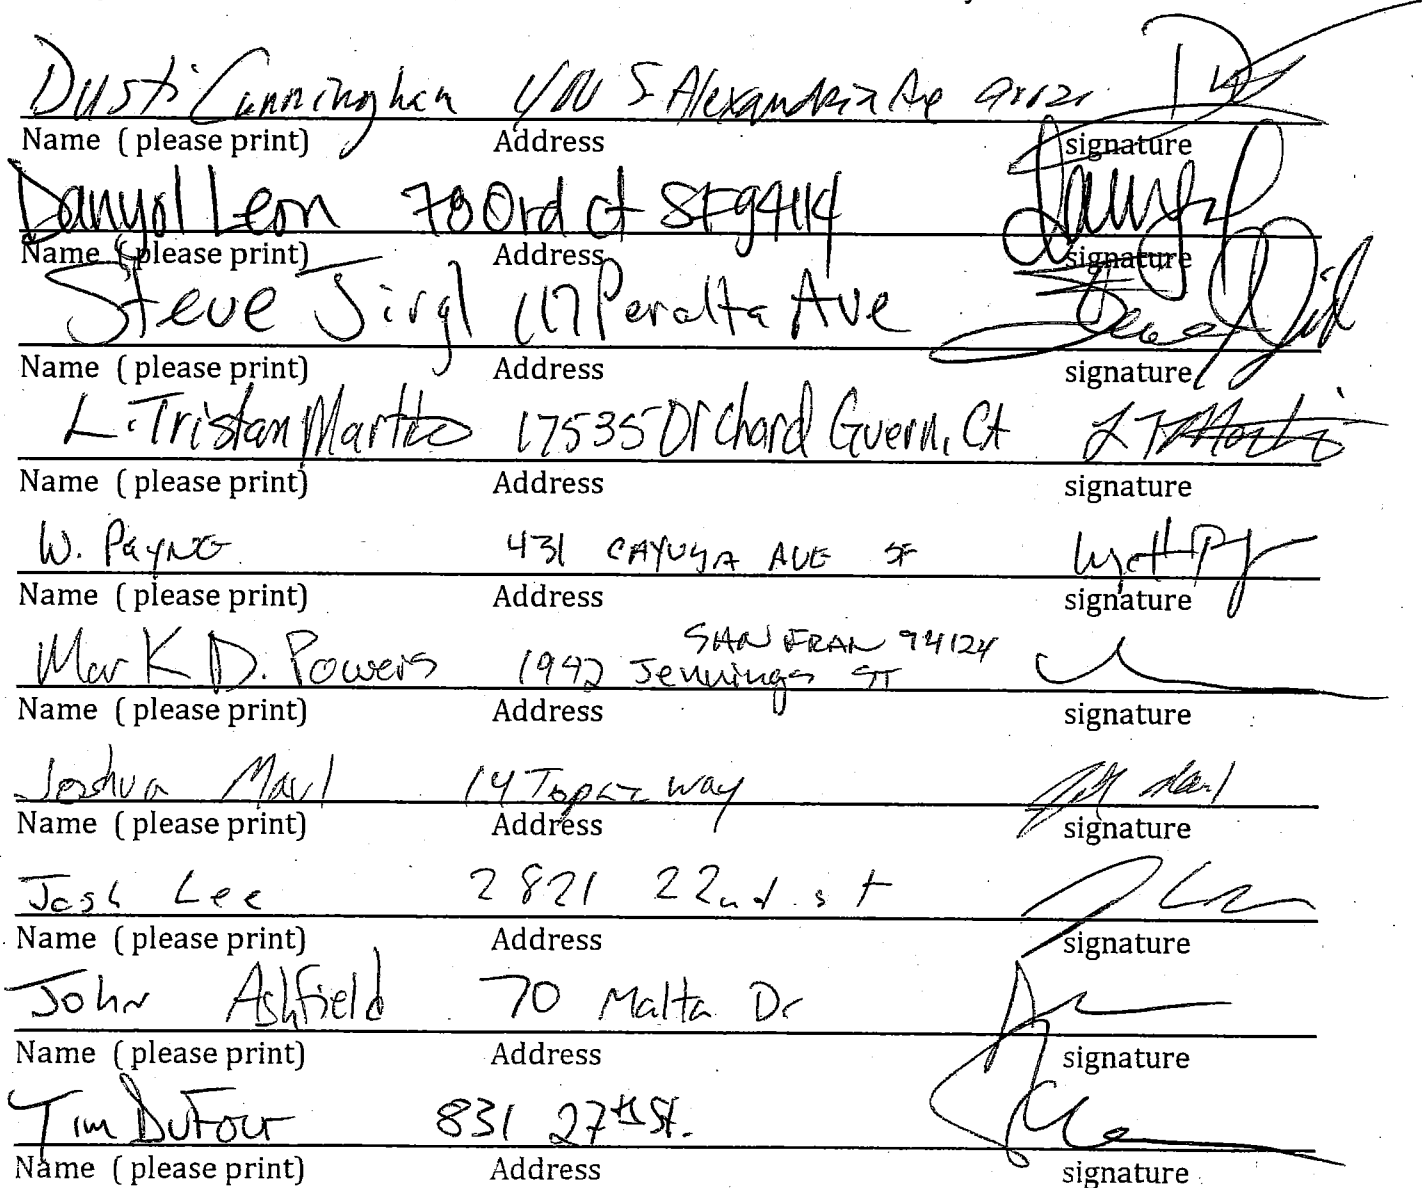 Dusti Cunningham S Alexandria Ave
Name ( please print) Address signature
Danyol Leon 78 Ord ct SF 94114
Name ( please print) Address signature
Steve Jirgl 117 Peralta Ave
Name ( please print) Address signature
L. Tristan 17535 Orchard Guern, CA
Name ( please print) Address signature
W. Payne 431 CAYUGA AVE SF
Name ( please print) Address signature
SAN FRAN 94124
Mark D. Powers 1942 Jennings ST
Name ( please print) Address signature
Joshua Marl 14 Topaz Way
Name ( please print) Address signature
Josh Lee 2821 22nd st
Name ( please print) Address signature
John Ashfield 70 Malta Dr
Name ( please print) Address signature
Tim DuFour 831 27th St.
Name ( please print) Address signature